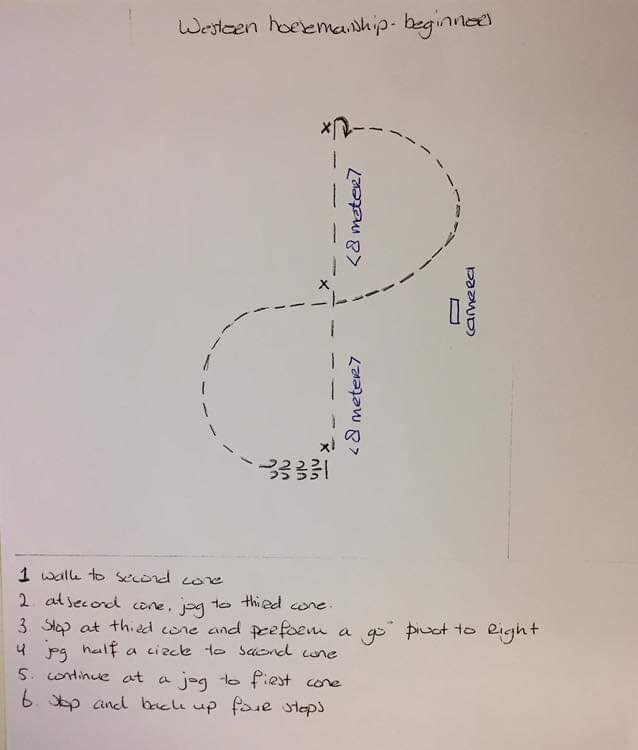 Western horsemanship - beginners
x
<8 meter>
x
camera
<8 meter>
x
1 walk to second cone
2. at second cone, jog to third cone.
3. stop at third cone and perform a 90° pivot to right
4 jog half a circle to second cone
5. continue at a jog to first cone
6. stop and back up four steps